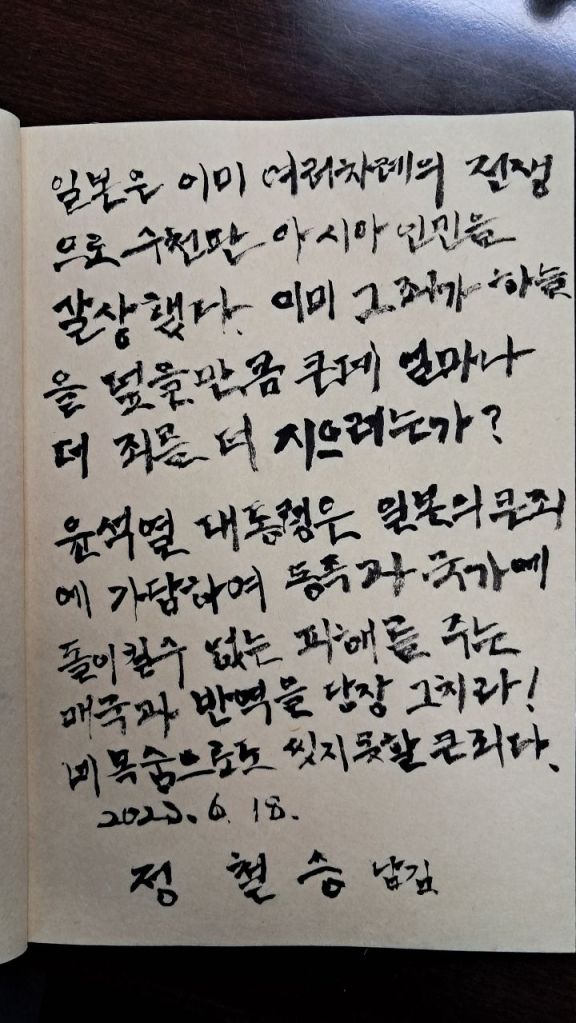 일본은 이미 여러차례의 전쟁
으로 수천만 아시아 인민을
살상했다. 이미 그 죄가 하늘
을 덮을만큼 큰데 얼마나
더 죄를 더 지으려는가?
윤석열 대통령은 일본의 큰죄
에 가담하여 동족과 국가에
돌이킬수 없는 피해를 주는
매국과 반역을 당장 그치라!
네 목숨으로도 씻지못할 큰 죄다.
2023. 6. 18.
정 철 승 남김